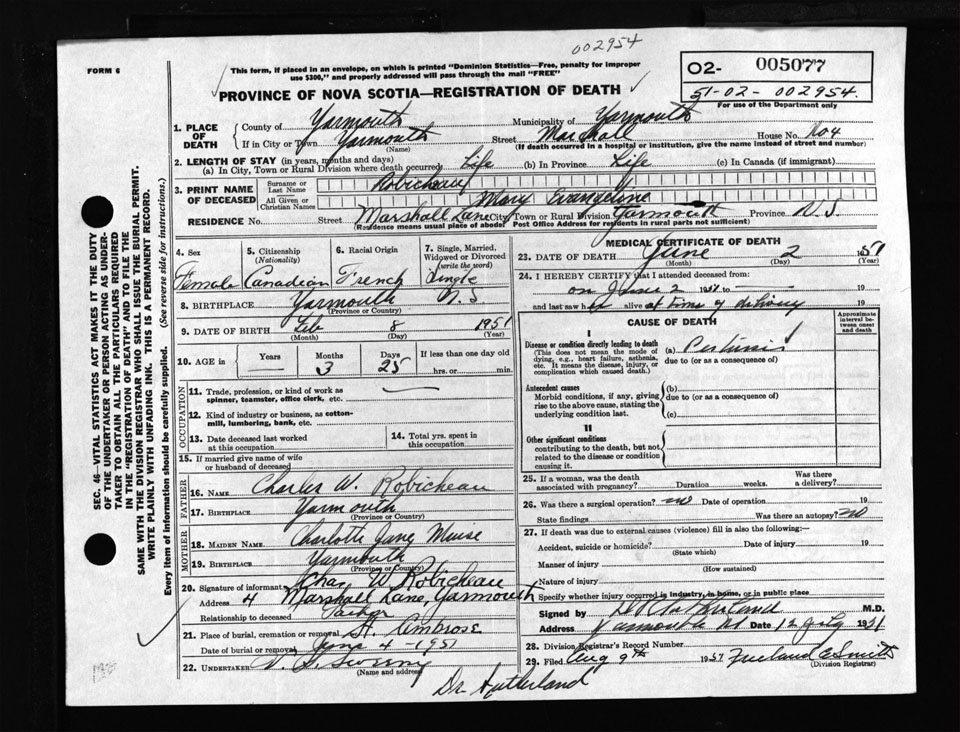 002954
FORM 6
This form, if placed in an envelope, on which is printed "Dominion Statistics—Free, penalty for improper
use $300," and properly addressed will pass through the mail "FREE"
O2- 005077
51-02- 002954.
For use of the Department only
PROVINCE OF NOVA SCOTIA—REGISTRATION OF DEATH
1. PLACE OF DEATH
County of Yarmouth Municipality of Yarmouth
If in City or Town Yarmouth (Name) Street Marshall House No. No 4
(If death occurred in a hospital or institution, give the name instead of street and number)
2. LENGTH OF STAY (in years, months and days)
(a) In City, Town or Rural Division where death occurred Life (b) In Province Life (c) In Canada (if immigrant)
3. PRINT NAME OF DECEASED
Surname or Last Name Robicheau
All Given or Christian Names Mary Evangeline
RESIDENCE No. Street Marshall Lane City, Town or Rural Division Yarmouth Province N.S
(Residence means usual place of abode: Post Office Address for residents in rural parts not sufficient)
4. Sex Female
5. Citizenship (Nationality) Canadian
6. Racial Origin French
7. Single, Married, Widowed or Divorced (write the word) Single
8. BIRTHPLACE Yarmouth N.S
(Province or Country)
9. DATE OF BIRTH Feb 8 1951
(Month) (Day) (Year)
10. AGE in Years — Months 3 Days 25 If less than one day old
hrs. or min.
OCCUPATION
11. Trade, profession, or kind of work as
spinner, teamster, office clerk, etc. —
12. Kind of industry or business, as cotton-
mill, lumbering, bank, etc.
13. Date deceased last worked
at this occupation
14. Total yrs. spent in
this occupation
15. If married give name of wife
or husband of deceased
FATHER
16. NAME Charles W. Robicheau
17. BIRTHPLACE Yarmouth
(Province or Country)
MOTHER
18. MAIDEN NAME Charlotte Jane Muise
19. BIRTHPLACE Yarmouth
(Province or Country)
20. Signature of informant Chas W Robicheau
Address 4 Marshall Lane, Yarmouth
Relationship to deceased Father
21. Place of burial, cremation or removal St. Ambrose
Date of burial or removal June 4 - 1951
22. UNDERTAKER V. S. Sweeny
(Name and address)
Dr Sutherland
MEDICAL CERTIFICATE OF DEATH
23. DATE OF DEATH June 2 1951
(Month) (Day) (Year)
24. I HEREBY CERTIFY that I attended deceased from:
on June 2 1951 to — 19
and last saw h alive at time of delivery 19
CAUSE OF DEATH
Approximate interval between onset and death
I
Disease or condition directly leading to death
(This does not mean the mode of
dying, e.g., heart failure, asthenia,
etc. It means the disease, injury, or
complication which caused death.)
(a) Pertussis
due to (or as a consequence of)
Antecedent causes
Morbid conditions, if any, giving
rise to the above cause, stating the
underlying condition last.
(b)
due to (or as a consequence of)
(c)
II
Other significant conditions
contributing to the death, but not
related to the disease or condition
causing it.
25. If a woman, was the death
associated with pregnancy? Duration weeks. Was there
a delivery?
26. Was there a surgical operation? no Date of operation 19
State findings Was there an autopsy? no
27. If death was due to external causes (violence) fill in also the following:—
Accident, suicide or homicide? Date of injury 19
(State which)
Manner of injury
(How sustained)
Nature of injury
Specify whether injury occurred in industry, in home, or in public place
Signed by Sutherland M.D.
Address Yarmouth Date 12 July 1951
28. Division Registrar's Record Number
29. Filed Aug 9th 1951 Smith
(Division Registrar)
SEC. 46—VITAL STATISTICS ACT MAKES IT THE DUTY
OF THE UNDERTAKER OR PERSON ACTING AS UNDER-
TAKER TO OBTAIN ALL THE PARTICULARS REQUIRED
IN THE "REGISTRATION OF DEATH" AND TO FILE THE
SAME WITH THE DIVISION REGISTRAR WHO SHALL ISSUE THE BURIAL PERMIT.
WRITE PLAINLY WITH UNFADING INK. THIS IS A PERMANENT RECORD.
Every item of information should be carefully supplied. (See reverse side for instructions.)